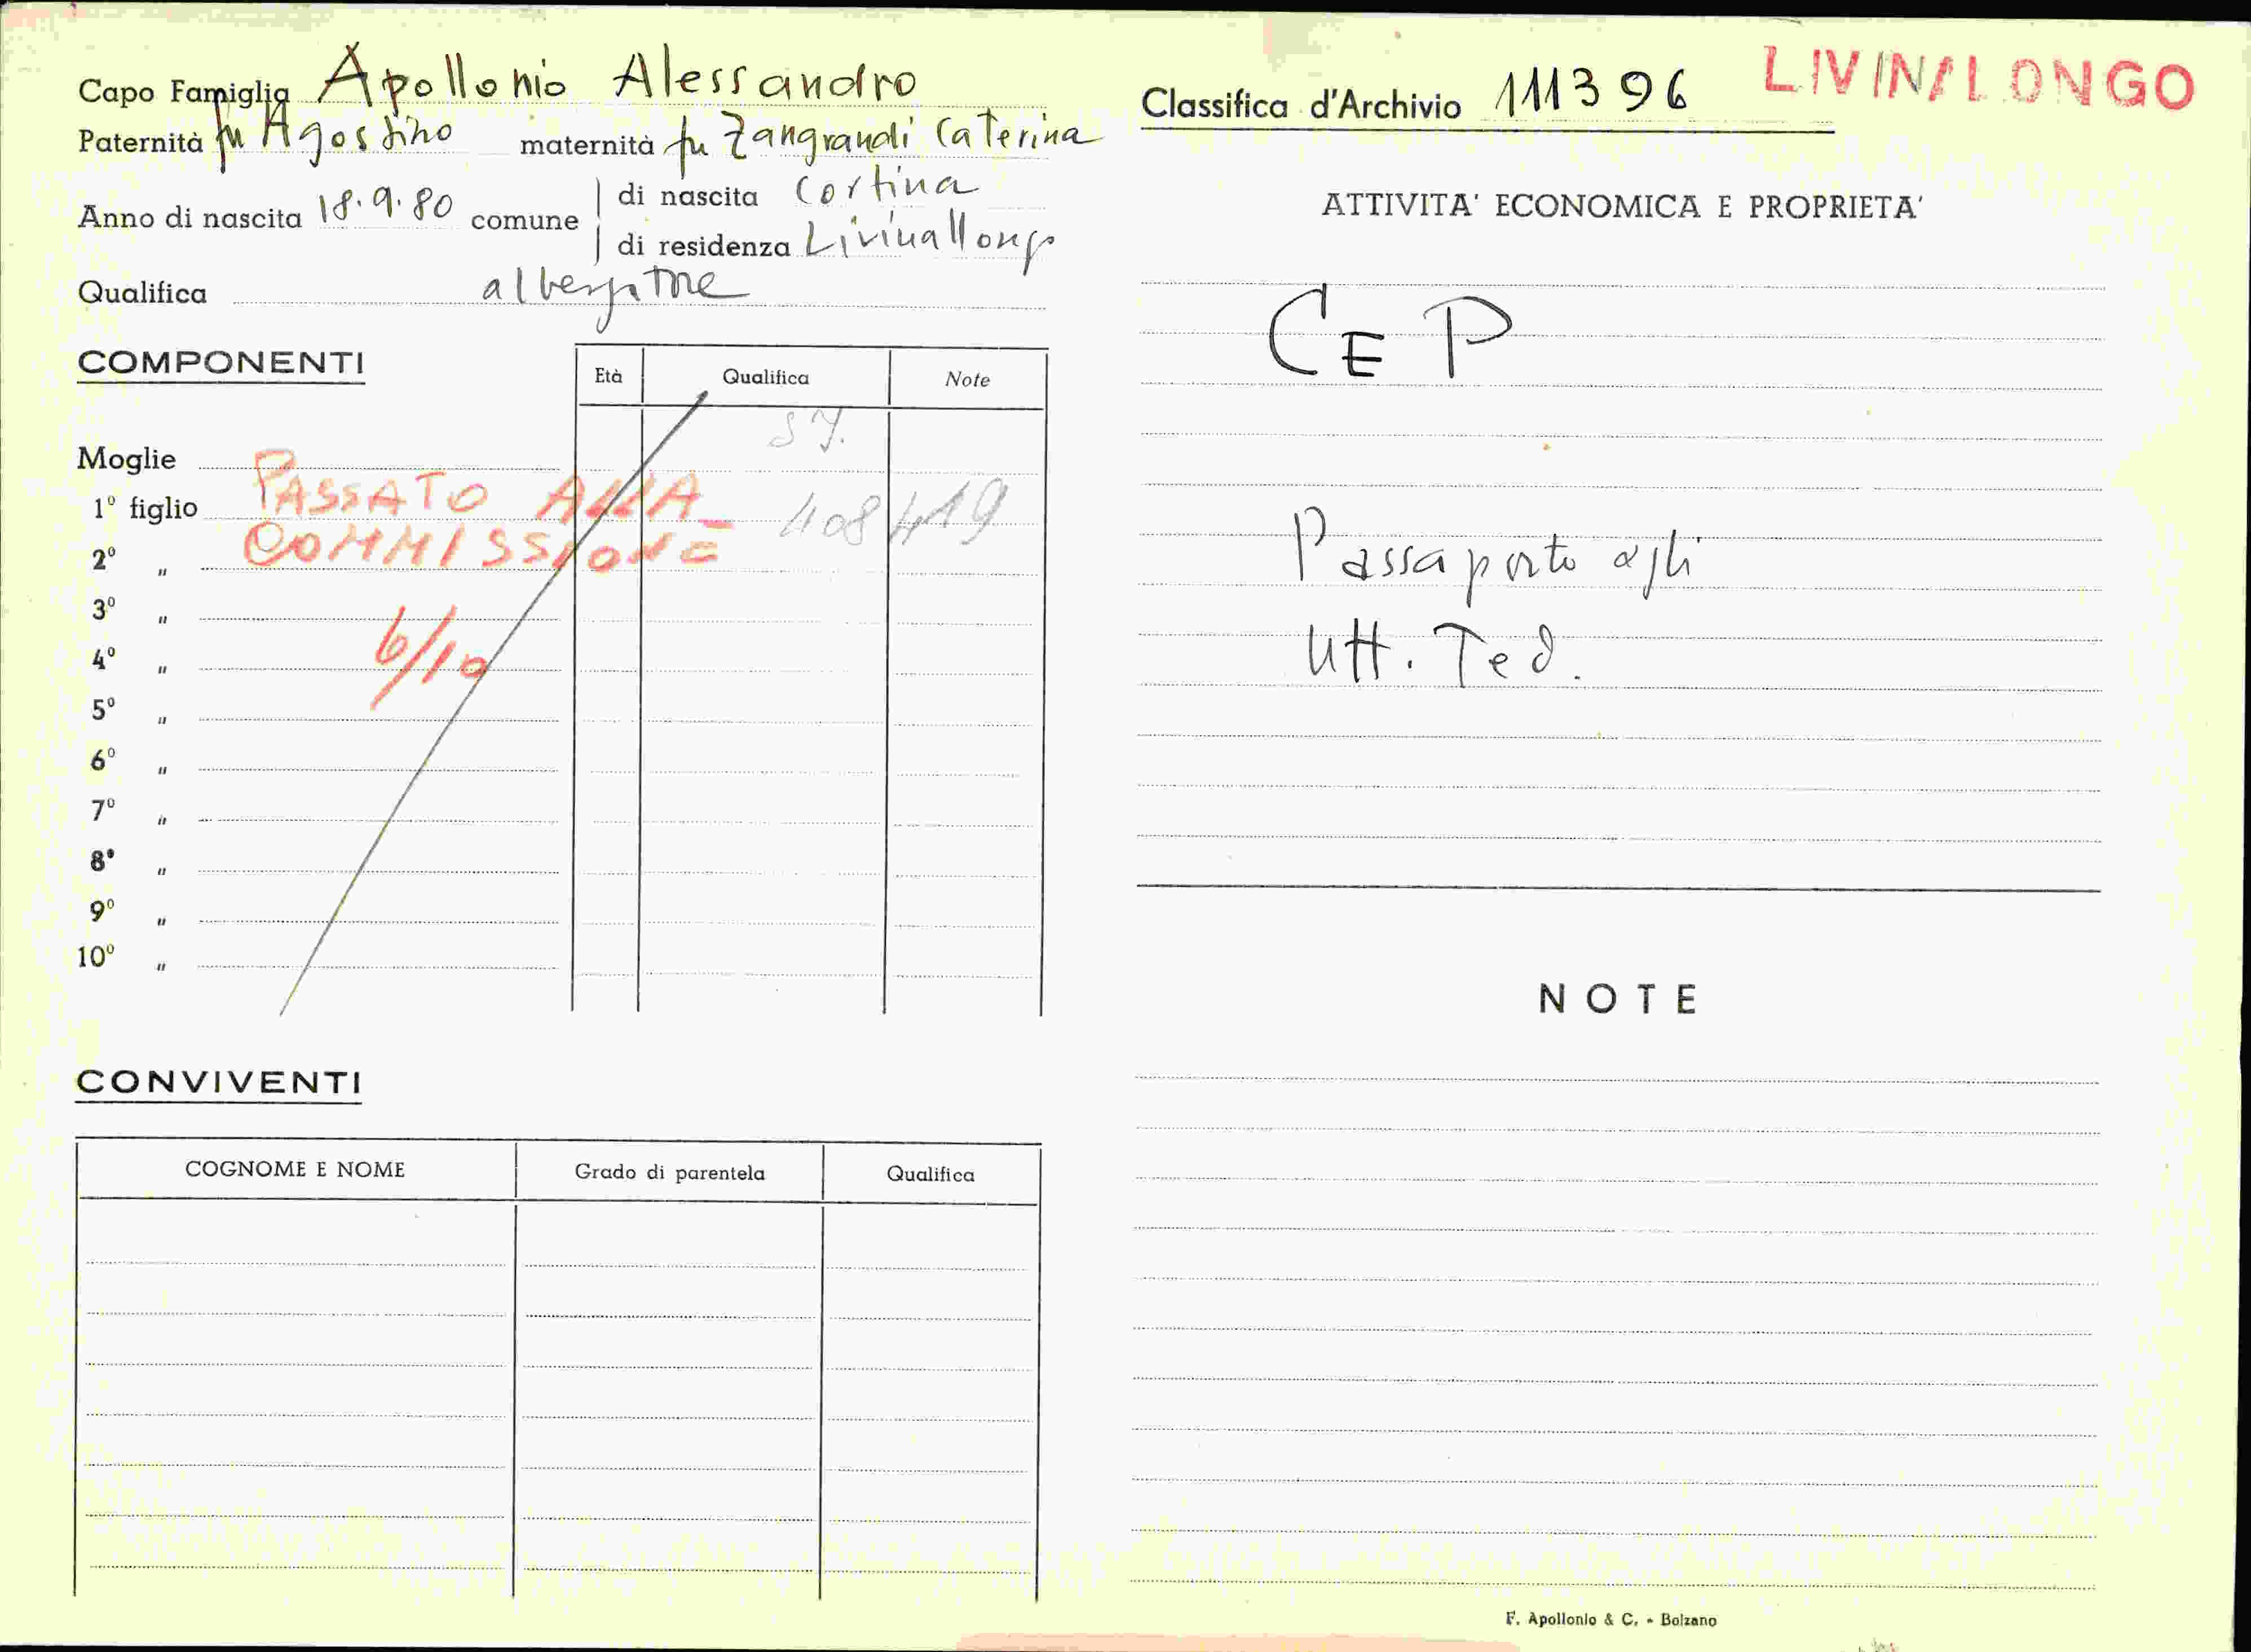 Capo Famiglia Apollonio Alessandro
Paternità fu Agostino maternità fu Zangrandi Caterina
Anno di nascita 18.9.80 comune di nascita Cortina
di residenza Livinallongo
Qualifica albergatore
COMPONENTI
Età Qualifica Note
Moglie
1º figlio
2º "
3º "
4º "
5º "
6º "
7º "
8º "
9º "
10º "
PASSATO ALLA
COMMISSIONE
6/10
408419
CONVIVENTI
COGNOME E NOME Grado di parentela Qualifica
Classifica d'Archivio 111396 LIVINALONGO
ATTIVITA' ECONOMICA E PROPRIETA'
CEP
Passaporto agli
Uff. Ted.
NOTE
F. Apollonio & C. - Bolzano